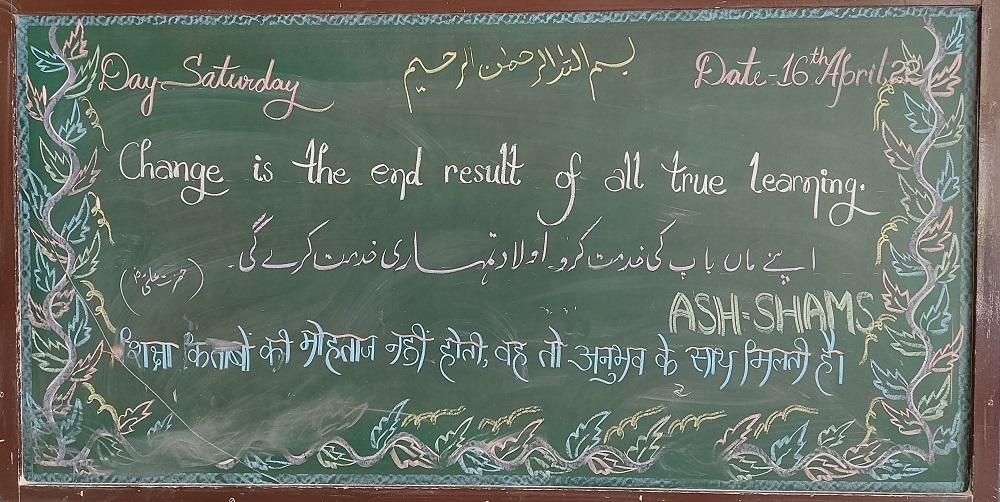 Day-Saturday
بسم اللہ الرحمٰن الرحیم
Date-16th April, 22
Change is the end result of all true learning.
اپنے ماں باپ کی خدمت کرو اولاد تمہاری خدمت کرے گی۔
(حضرت علیؓ)
ASH-SHAMS
शिक्षा किताबों की मोहताज नहीं होती, वह तो अनुभव के साथ मिलती है।